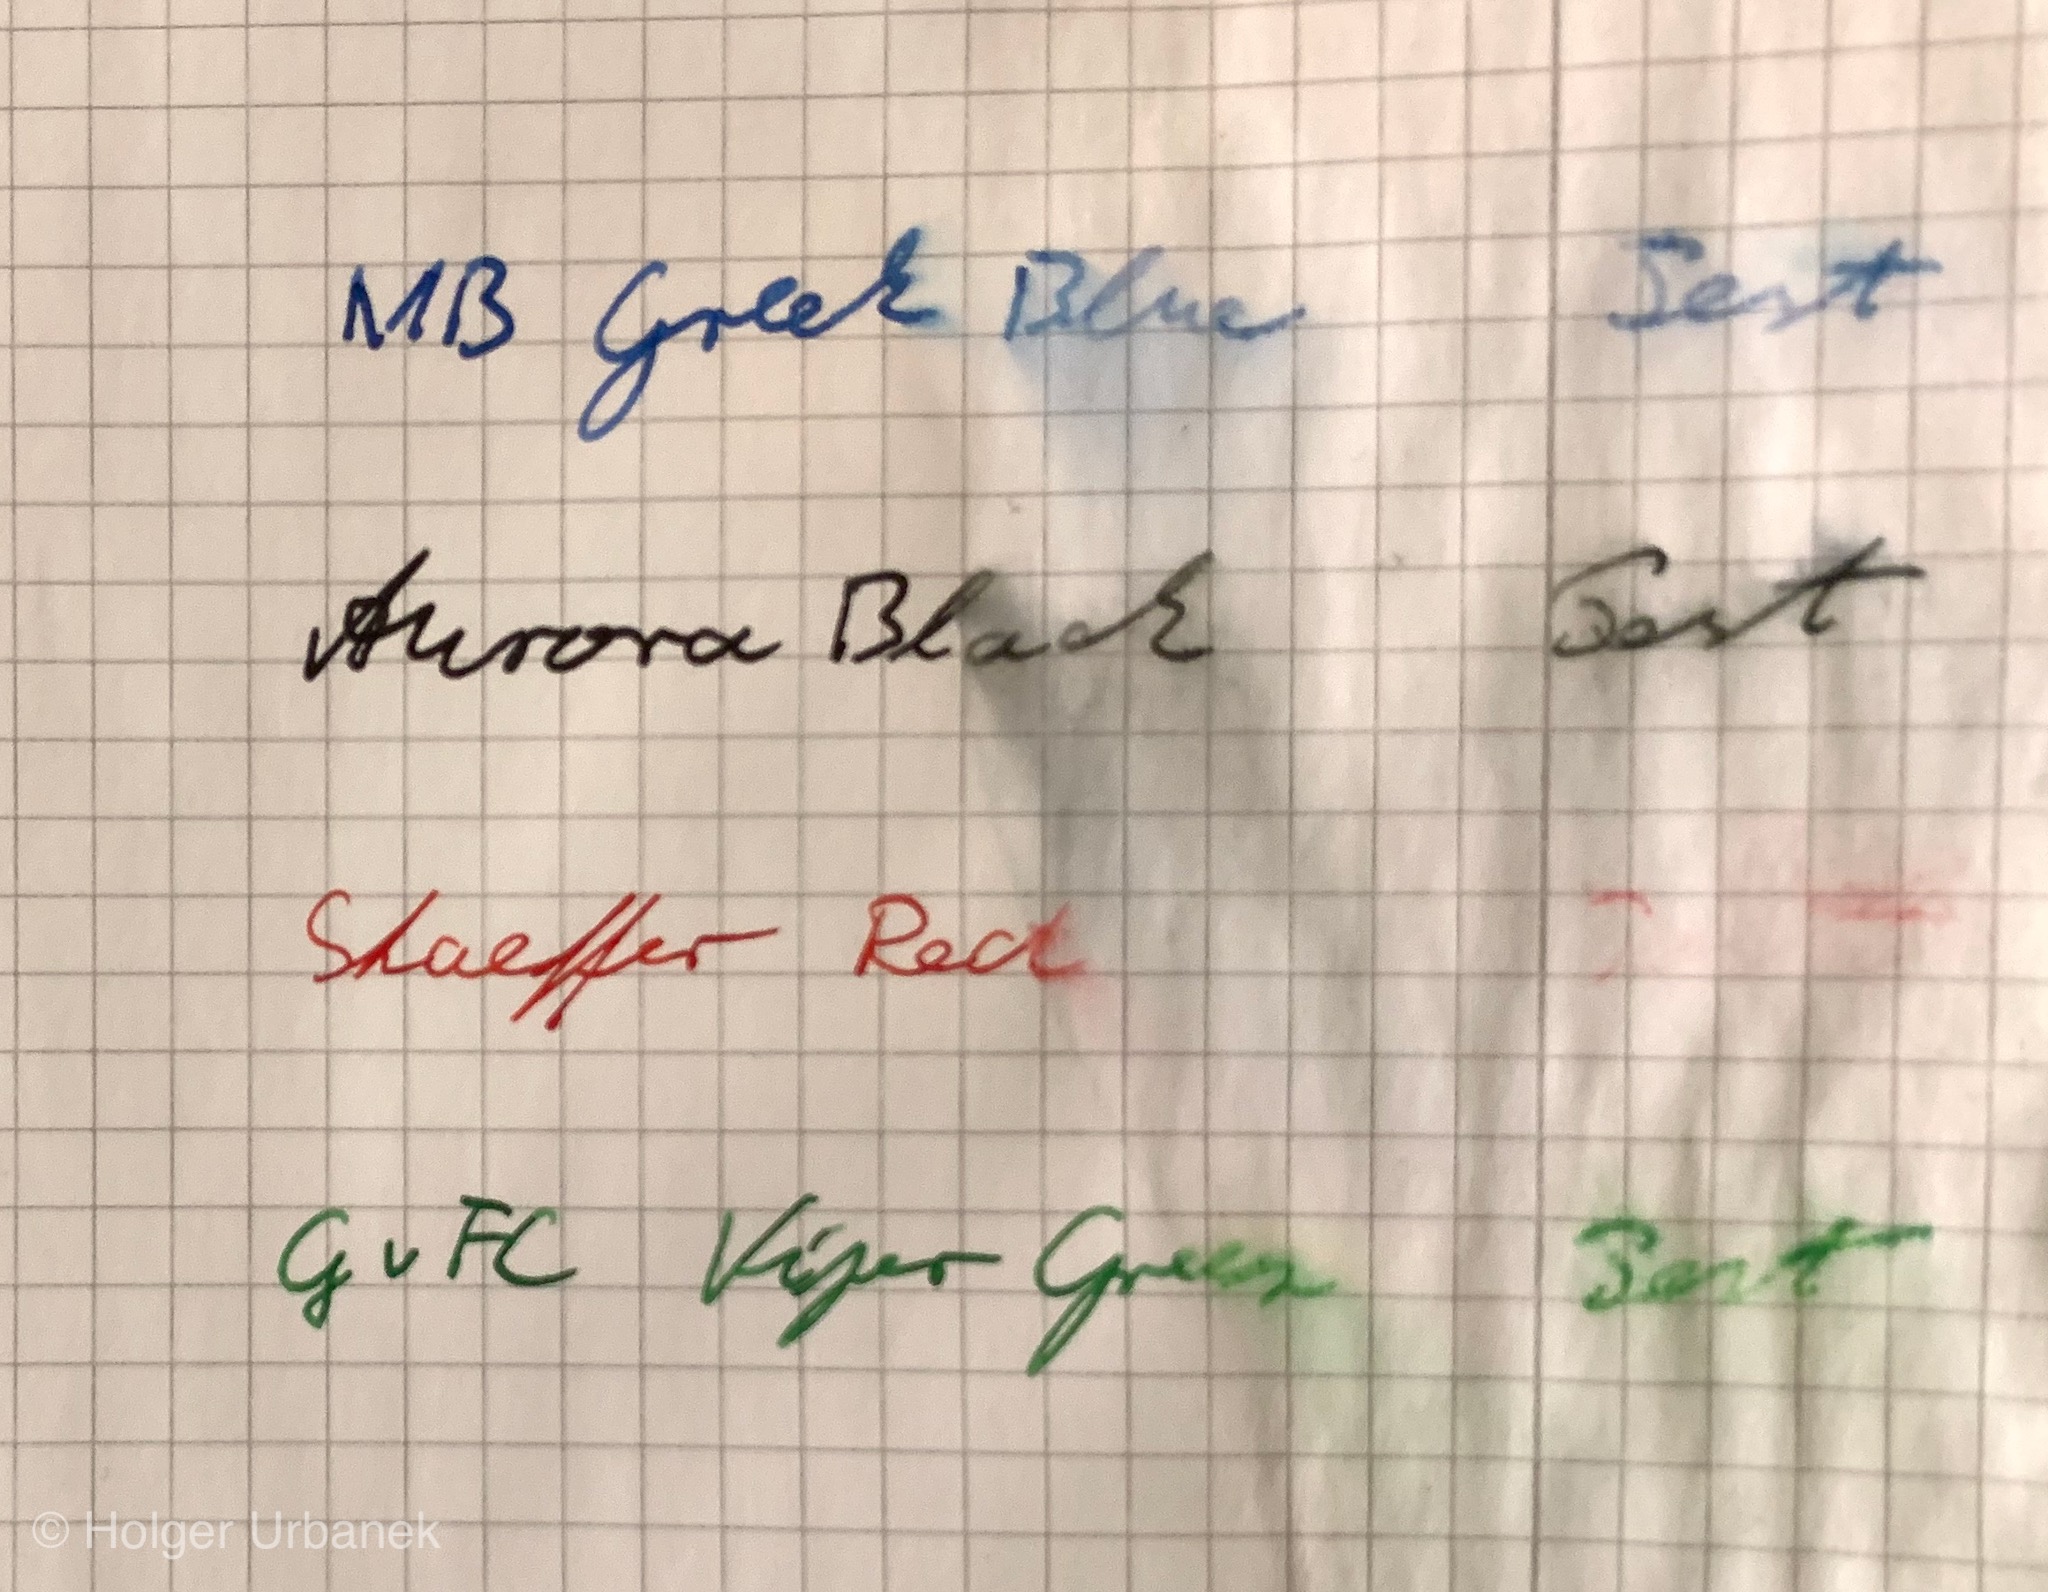 MB Greek Blue Test
Aurora Black Test
Shaeffer Red
GvFC Viper Green Test
© Holger Urbanek